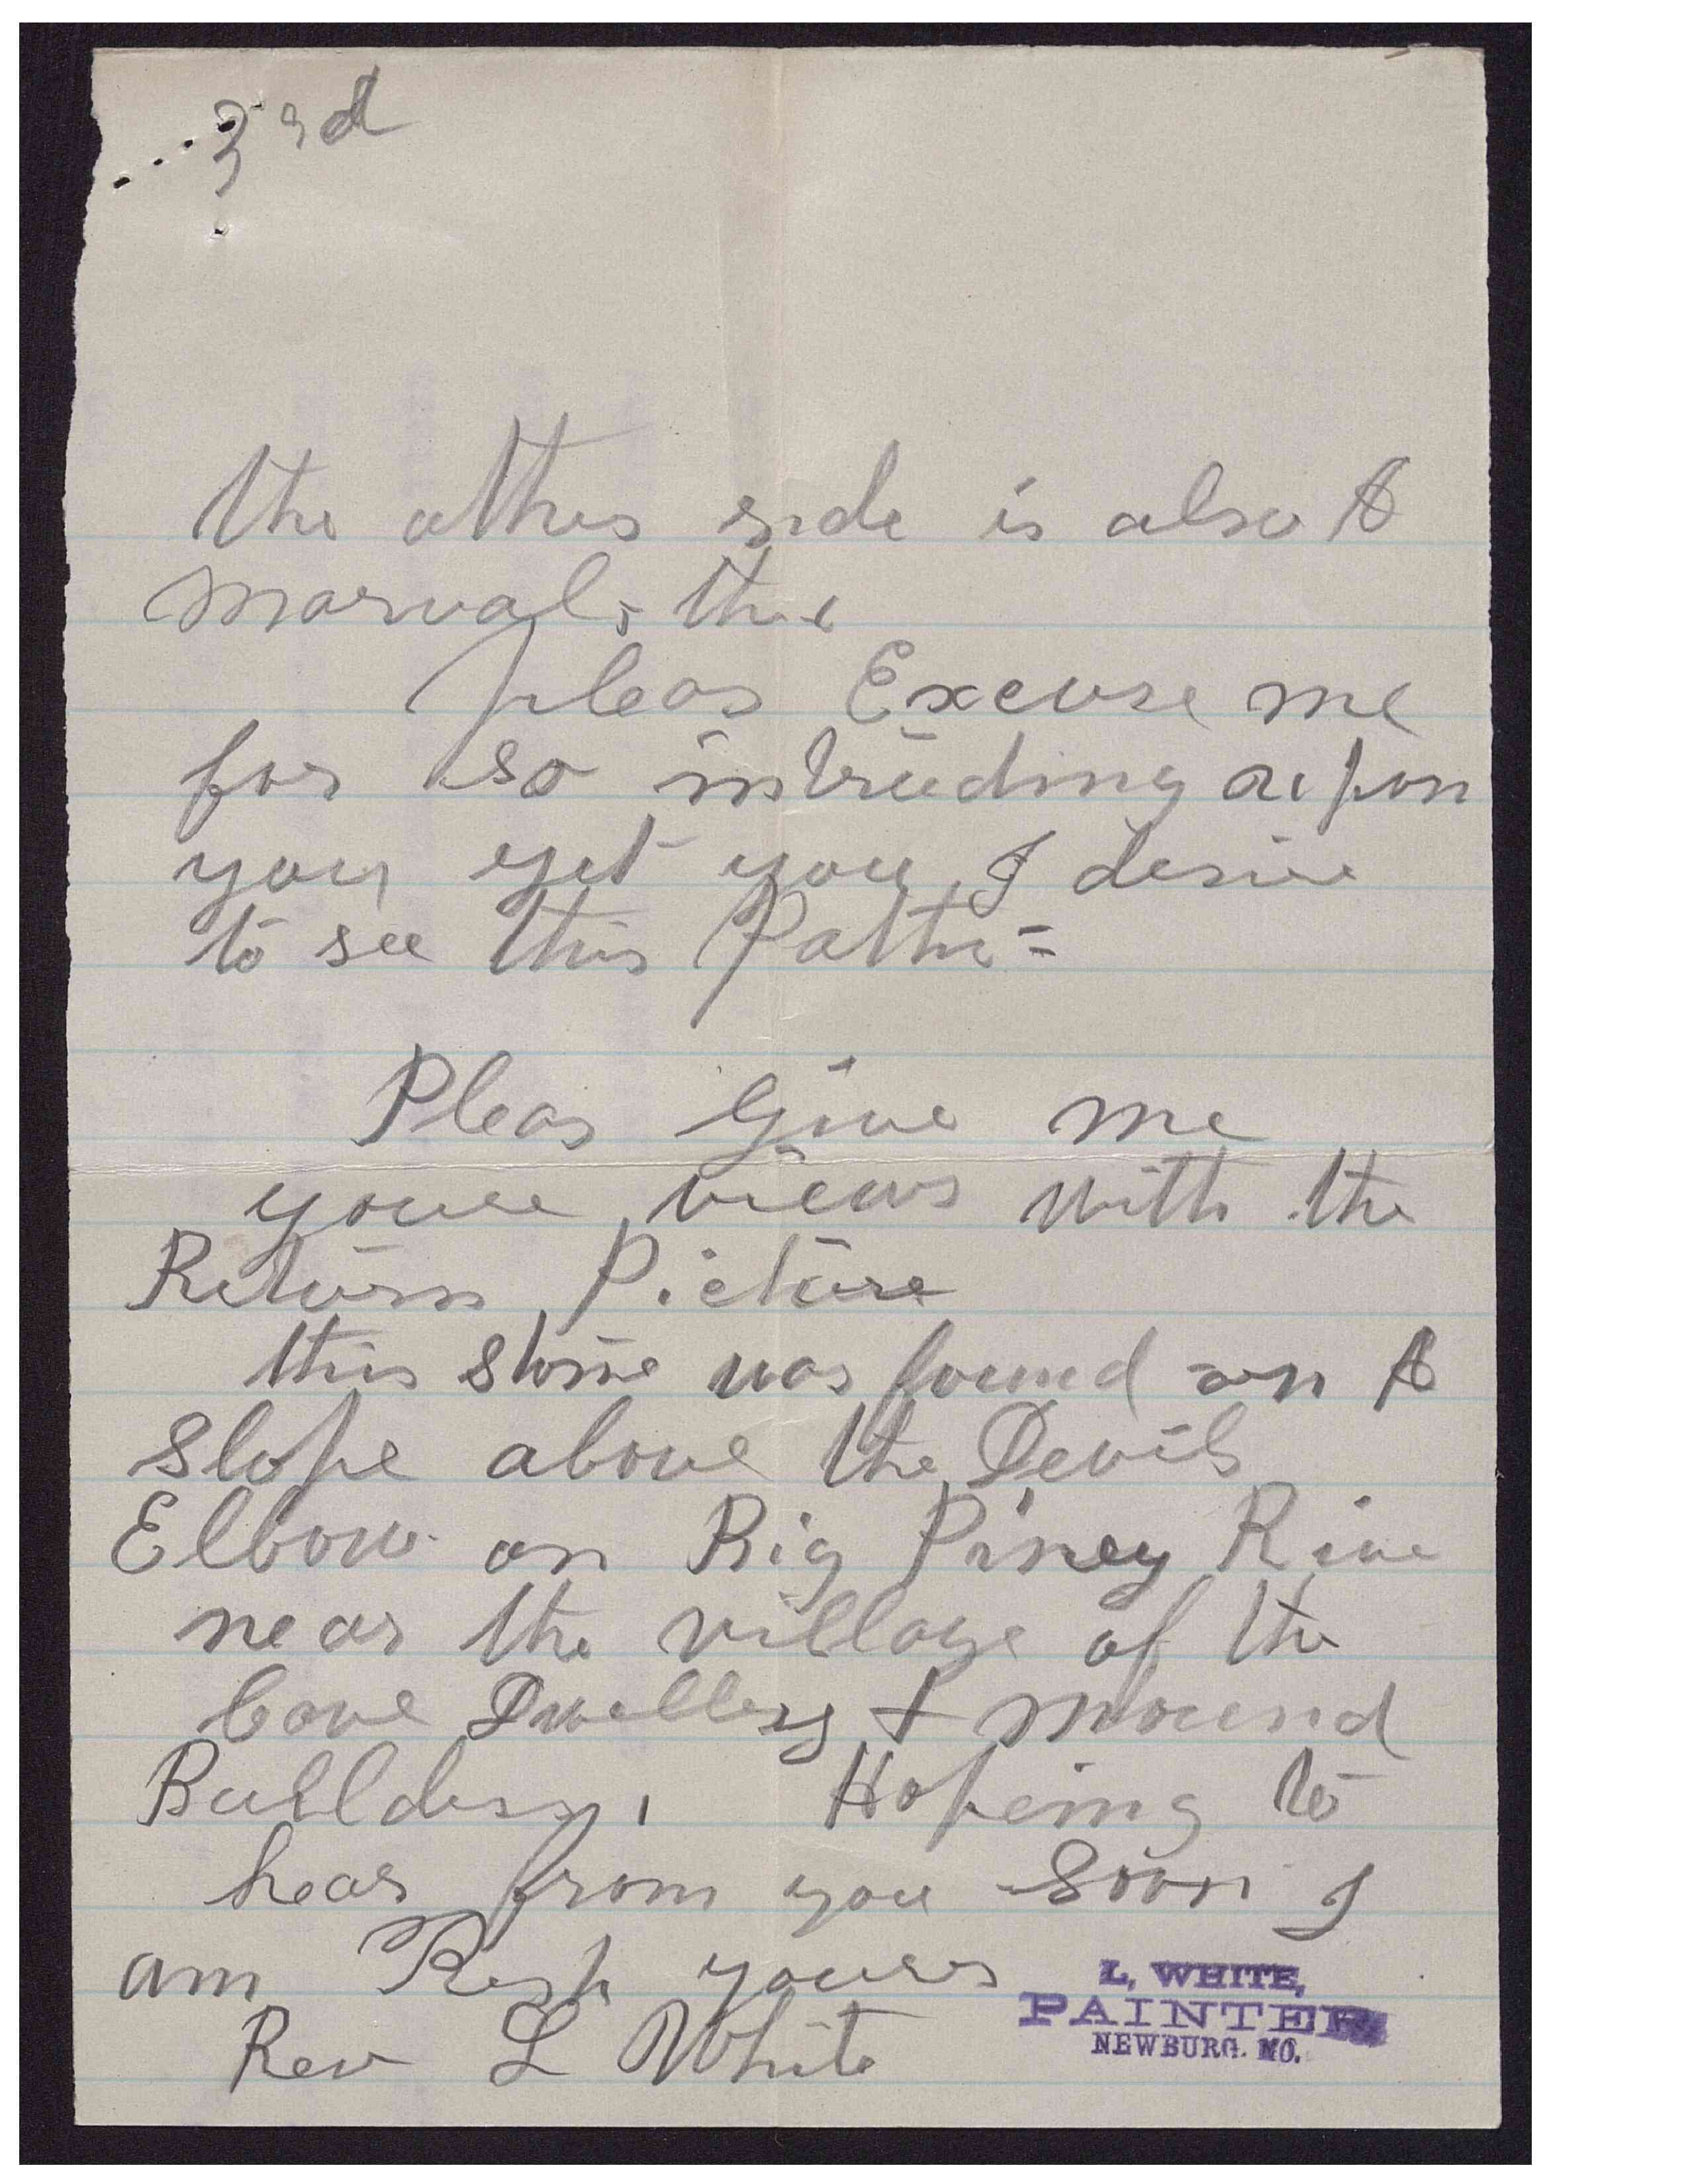 3rd
the other side is also A
marval, the
pleas Excuse me
for so intruding upon
you yet you I desire
to see this
Pleas Give me
youre views with the
Return Picture
this stone was found on A
slope above the Devils
Elbow on Big Piney Rive
near the village of the
Cave Dwellers & mound
Builders, Hopeing to
hear from you soon I
am Resp yours
Rev L White
L, WHITE,
PAINTER
NEWBURG. MO.